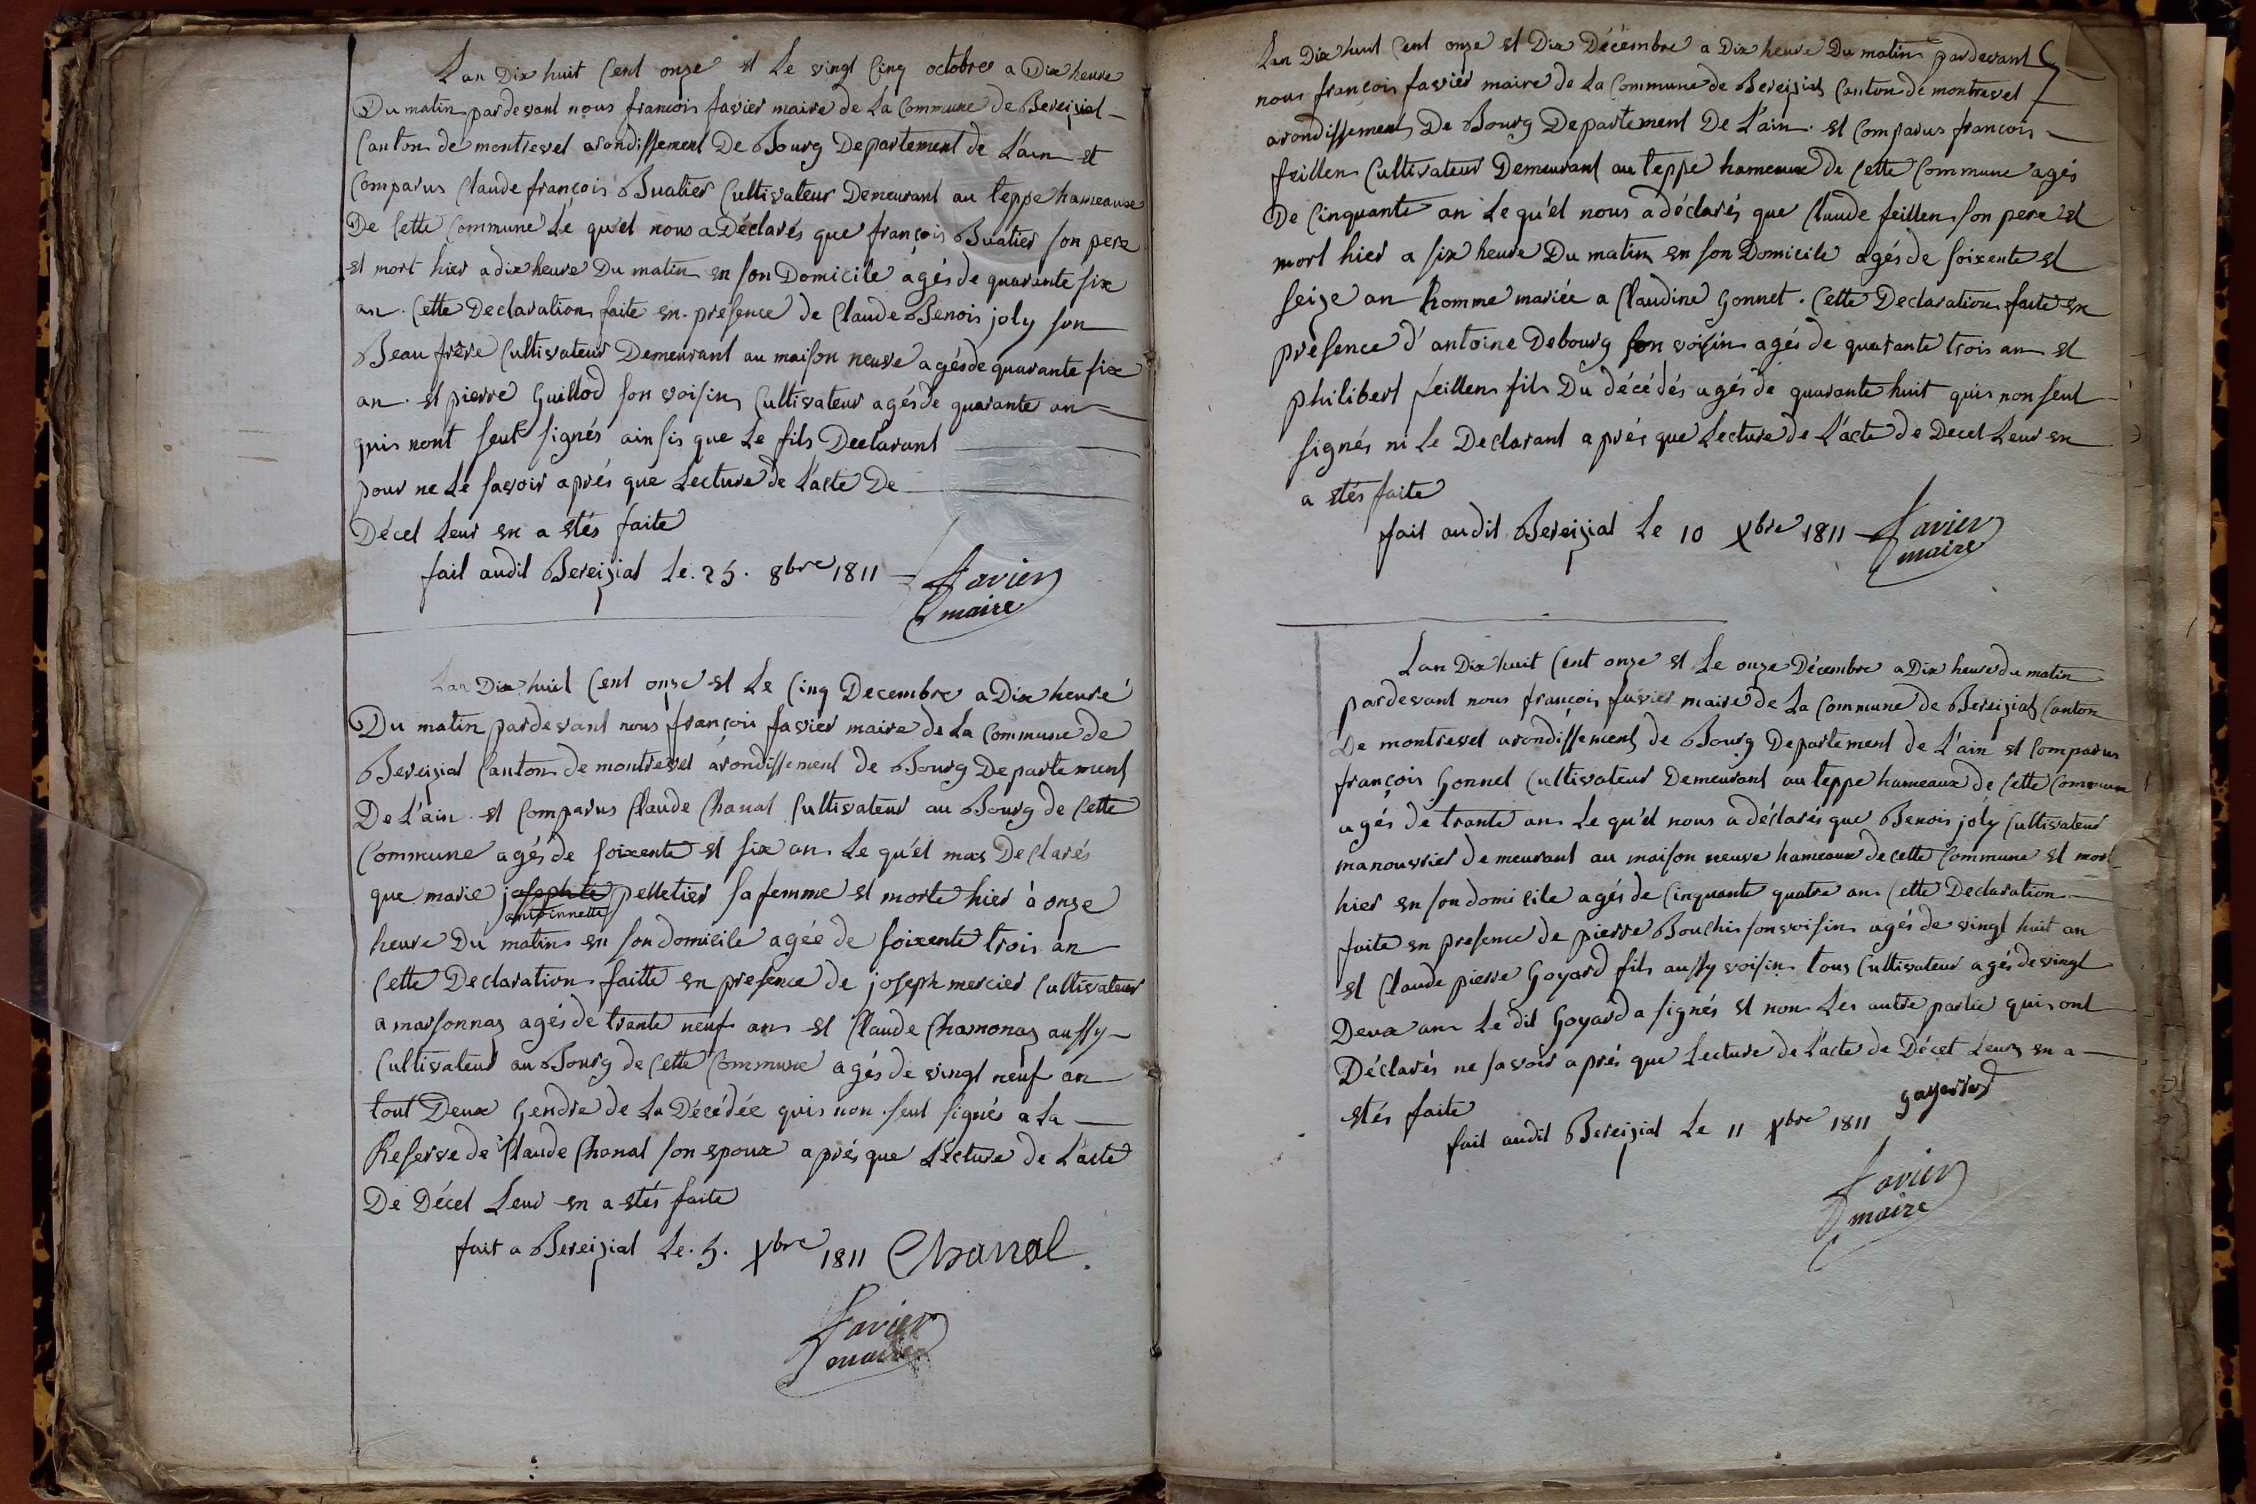 Lan Dix huit Cent onze et Le vingt Cinq octobre a Dix heure
Du matin pardevant nous françois favier maire de La Commune de Bereizial
Canton de montrevel arondissement De Bourg Departement de L'ain et
Comparus Claude françois Buatier Cultivateur Demeurant au teppe hameaux
De Cette Commune Le qu'el nous a Déclarés que françois Buatier son pere
et mort hier a dix heure Du matin en son Domicile agés de quarante six
an. Cette Declaration faite en presence de Claude Benois joly son
Beau frere Cultivateur Demeurant au maison neuve agés de quarante six
an. et pierre Guillod son voisin Cultivateur agés de quarante an
quis nont seut signés ainsis que Le fils Declarant
pour ne Le savoir aprés que Lecture de L'acte De
Décel Leur en a etés faite
fait audit Bereizial Le. 25. 8bre 1811
favier
maire
Lan Dix huit Cent onze et Le Cinq Decembre a Dix heure
Du matin pardevant nous françois favier maire de La Commune de
Bereizial Canton de montrevel arondissement de Bourg Departement
De L'ain et Comparus Claude Chanal Cultivateur au Bourg de Cette
Commune agés de soixente et six an Le qu'el mas Declarés
que marie josephte pelletier sa femme et morte hier à onze
antoinnette
heure Du matin en son domicile agée de soixente trois an
Cette Declaration faitte en presence de joseph mercier Cultivateur
a marsonnas agés de trante neuf an et Claude Chamonaz aussy
Cultivateur au Bourg de Cette Commune agés de vingt neuf an
tout Deux Gendre de La Décédée quis non seut signés a La
Reserve de Claude Chanal son epoux aprés que Lecture de L'acte
De Décel Leur en a etés faite
fait a Bereizial Le. 5. Xbre 1811 Chanal.
favier
maire
Lan Dix huit Cent onze et Dix Décembre a Dix heure Du matin pardevant
nous françois favier maire de La Commune de Bereizial Canton de montrevel
arondissement De Bourg Departement De L'ain. et Comparus françois
feillen Cultivateur Demeurant au teppe hameaux de Cette Commune agés
De Cinquante an Le qu'el nous a déclarés que Claude feillen son pere et
mort hier a six heure Du matin en son Domicile agés de soixente et
seize an homme mariée a Claudine Gonnet. Cette Declaration faite en
presence d'antoine Debourg son voisin agés de quarante trois an et
philibert feillen fils Du décédés agés de quarante huit quis non seut
signés ni Le Declarant aprés que Lecture de L'acte de Decel Leur en
a etés faite
fait audit Bereizial Le 10 Xbre 1811
favier
maire
Lan Dix huit Cent onze et Le onze Décembre a Dix heure du matin
pardevant nous françois favier maire de La Commune de Bereizial Canton
De montrevel arondissement de Bourg Departement de L'ain et Comparus
françois Gonnet Cultivateur Demeurant au teppe hameaux de Cette Commune
agés de trante an Le qu'el nous a déclarés que Benois joly Cultivateur
manouvrier demeurant au maison neuve hameaux de cette Commune et mort
hier en son domicile agés de Cinquante quatre an Cette Declaration
faite en presence de pierre Bouchis son voisin agés de vingt huit an
et Claude pierre Goyard fils aussy voisin tous Cultivateur agés de vingt
Deux an Le dit Goyard a signés et non Les autre partie quis ont
Déclarés ne savoir aprés que Lecture de L'acte de Décet Leur en a
etés faite
fait audit Bereizial Le 11 Xbre 1811
favier
maire